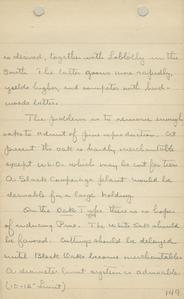 is desired, together with Loblolly in the
South. The latter grows more rapidly,
yields higher, and competes with hard-
woods better.
The problem is to remove enough
oaks to admit of pine reproduction. At
present the oak is hardly merchantable
except W.O. which may be cut for ties.
A Stack Cooperage plant would be
desirable for a large holding.
On the Oak Type there is no hope
of inducing Pine. The White Oak should
be favored. Cuttings should be delayed
until Black Oaks become merchantable.
A diameter limit system is advisable.
(10-12" limit)
149